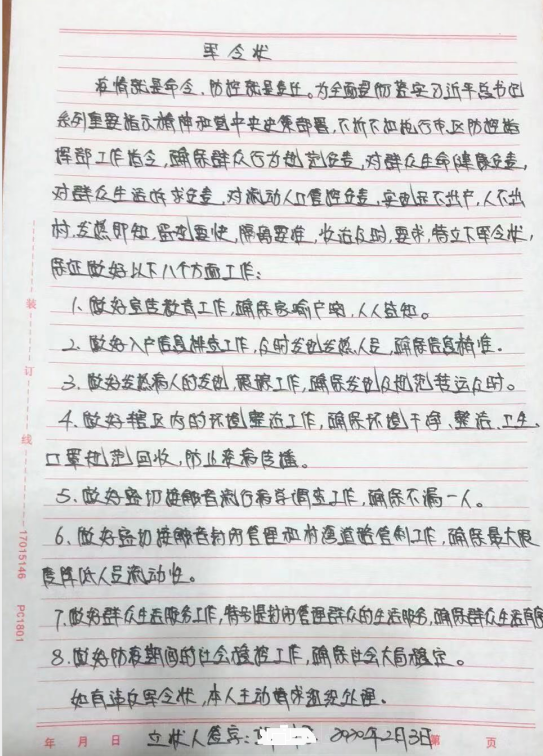 军令状
疫情就是命令,防控就是责任。为全面贯彻落实习近平总书记
系列重要指示精神和党中央决策部署,不折不扣执行市区防控指
挥部工作指令,确保群众行为规范负责,对群众生命健康负责,
对群众生活诉求负责,对流动人口管控负责,实现足不出户,人不出
村,发热即知,响应要快,隔离要准,收治及时,要求,特立下军令状,
保证做好以下八个方面工作:
1、做好宣传教育工作,确保家喻户晓,人人皆知。
2、做好入户信息排查工作,及时发现发热人员,确保信息精准。
3、做好发热病人的发现、跟踪工作,确保发现及规范转运及时。
4、做好辖区内的环境整治工作,确保环境干净、整洁、卫生、
口罩规范回收,防止疾病传播。
5、做好密切接触者流行病学调查工作,确保不漏一人。
6、做好密切接触者封闭管理和村湾道路管制工作,确保最大限
度降低人员流动性。
7、做好群众生活服务工作,特别是封闭管理群众的生活服务,确保群众生活有
8、做好防疫期间的社会维稳工作,确保社会大局稳定。
如有违反军令状,本人主动请求组织处理。
立状人签字: 2020年2月3日
年 月 日 第 页
装
订
线
17015146 PC1801